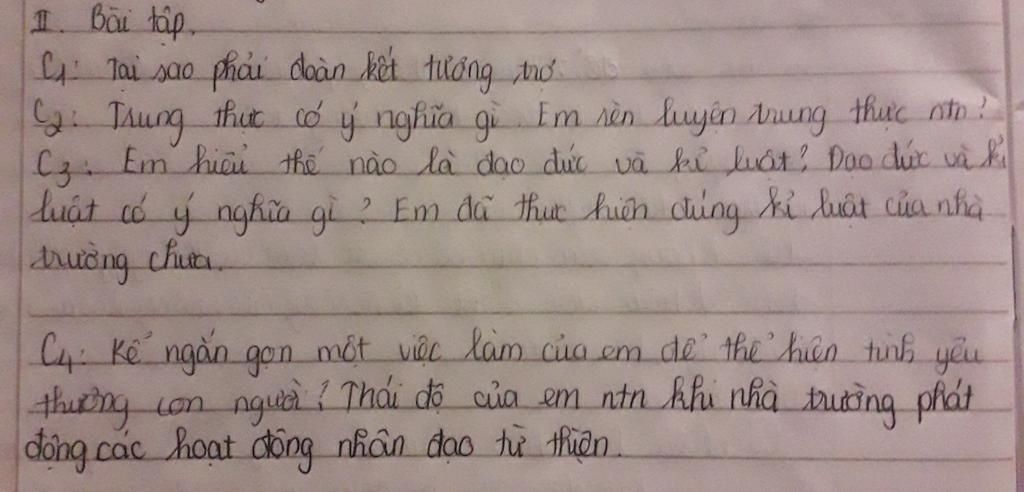 II. Bài tập.
C1: Tại sao phải đoàn kết tương trợ.
C2: Trung thực có ý nghĩa gì. Em rèn luyện trung thực ntn?
C3: Em hiểu thế nào là đạo đức và kỉ luật? Đạo đức và kỉ
luật có ý nghĩa gì? Em đã thực hiện đúng kỉ luật của nhà
trường chưa.
C4: Kể ngắn gọn một việc làm của em để thể hiện tình yêu
thương con người? Thái độ của em ntn khi nhà trường phát
động các hoạt động nhân đạo từ thiện.